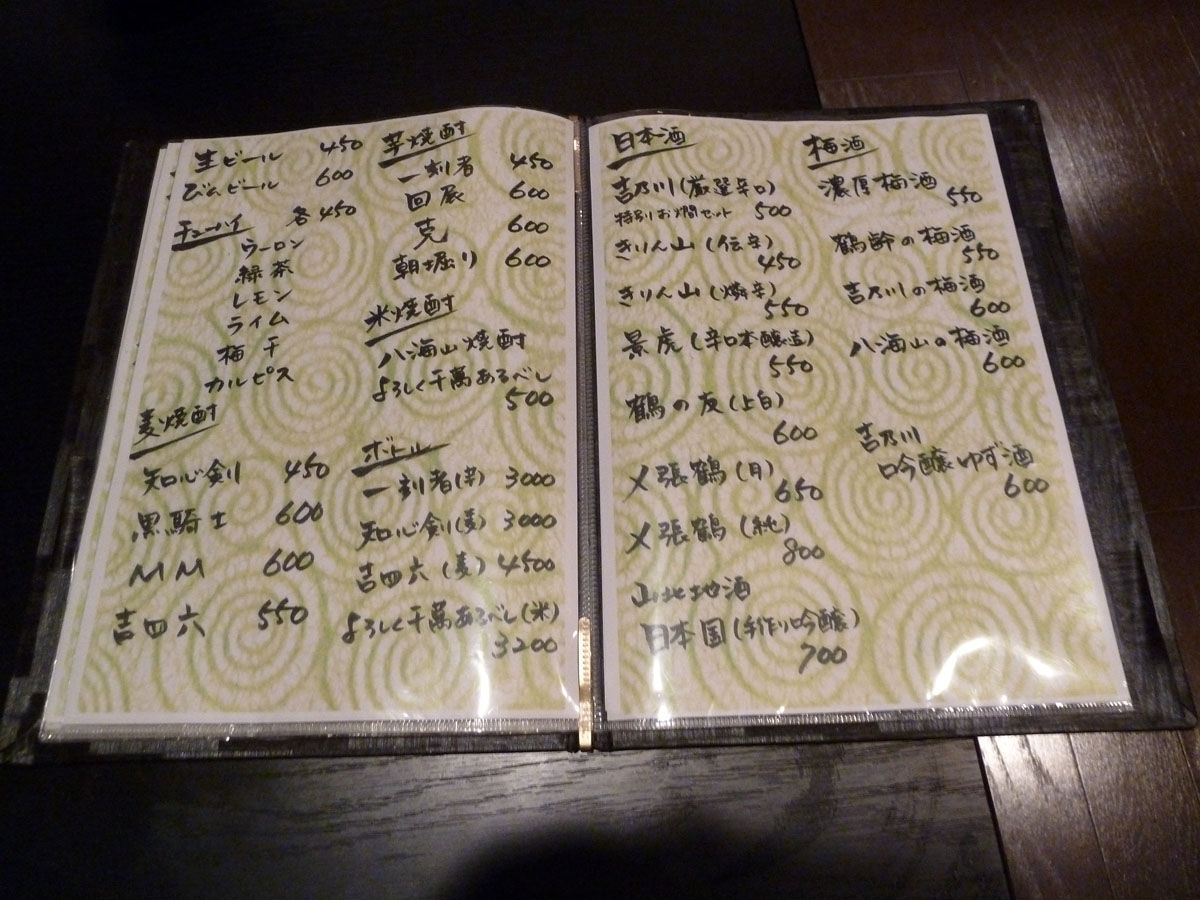 生ビール 450
びんビール 600
チューハイ 各450
ウーロン
緑茶
レモン
ライム
梅干
カルピス
麦焼酎
知心剣 450
黒騎士 600
MM 600
吉四六 550
芋焼酎
一刻者 450
回辰 600
克 600
朝堀り 600
米焼酎
八海山焼酎
よろしく千萬あるべし
500
ボトル
一刻者(芋) 3000
知心剣(麦) 3000
吉四六(麦) 4500
よろしく千萬あるべし(米)
3200
日本酒
吉乃川(厳選辛口)
特別お燗セット 500
きりん山(伝辛)
450
きりん山(燐辛)
550
景虎(辛口本醸造)
550
鶴の友(上白)
600
〆張鶴(月)
650
〆張鶴(純)
800
山北地酒
日本国(手作り吟醸)
700
梅酒
濃厚梅酒
550
鶴齢の梅酒
550
吉乃川の梅酒
600
八海山の梅酒
600
吉乃川
吟醸ゆず酒
600